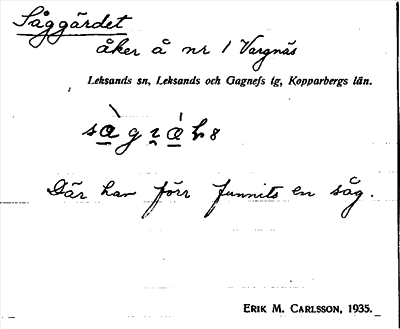 Såggärdet
åker å nr 1 Vargnäs
Leksands sn, Leksands och Gagnefs tg, Kopparbergs län.
Där har förr funnits en såg.
ERIK M. CARLSSON, 1935.